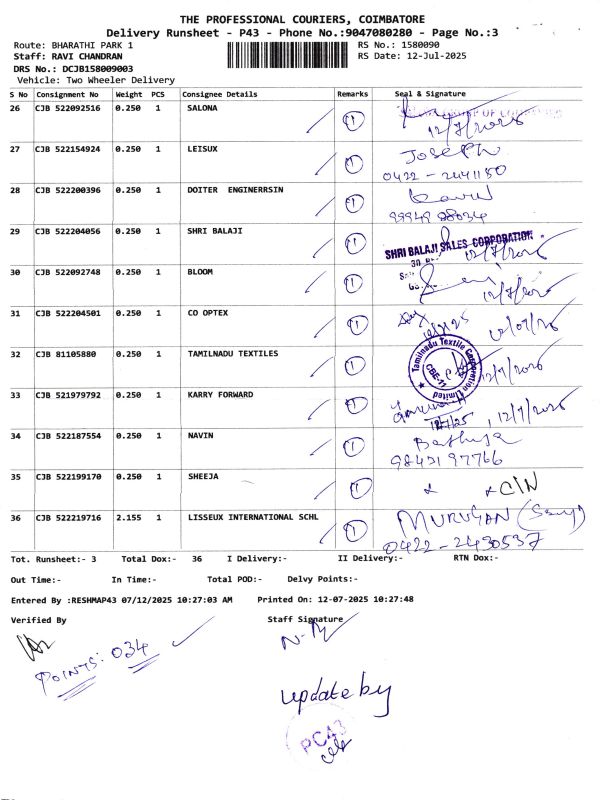 THE PROFESSIONAL COURIERS, COIMBATORE
Delivery Runsheet - P43 - Phone No.:9047080280 - Page No.:3
Route: BHARATHI PARK 1 RS No.: 1580090
Staff: RAVI CHANDRAN RS Date: 12-Jul-2025
DRS No.: DCJB158009003
Vehicle: Two Wheeler Delivery
S No Consignment No Weight PCS Consignee Details Remarks Seal & Signature
26 CJB 522092516 0.250 1 SALONA 1
27 CJB 522154924 0.250 1 LEISUX 1 Joseph
0422 - 2441180
28 CJB 522200396 0.250 1 DOITER ENGINERRSIN 1
99949 88034
29 CJB 522204056 0.250 1 SHRI BALAJI 1 SHRI BALAJI SALES CORPORATION
30 CJB 522092748 0.250 1 BLOOM 1
31 CJB 522204501 0.250 1 CO OPTEX 1
32 CJB 81105880 0.250 1 TAMILNADU TEXTILES 1 Tamilnadu Textile Corporation Limited CBE-11
33 CJB 521979792 0.250 1 KARRY FORWARD 1
12/7/25
34 CJB 522187554 0.250 1 NAVIN 1
98431 97766
35 CJB 522199170 0.250 1 SHEEJA 1 C/N
36 CJB 522219716 2.155 1 LISSEUX INTERNATIONAL SCHL 1 MURUGAN
0422 - 2430537
Tot. Runsheet:- 3 Total Dox:- 36 I Delivery:- II Delivery:- RTN Dox:-
Out Time:- In Time:- Total POD:- Delvy Points:-
Entered By :RESHMAP43 07/12/2025 10:27:03 AM Printed On: 12-07-2025 10:27:48
Verified By Staff Signature
POINTS: 034
update by
PC43